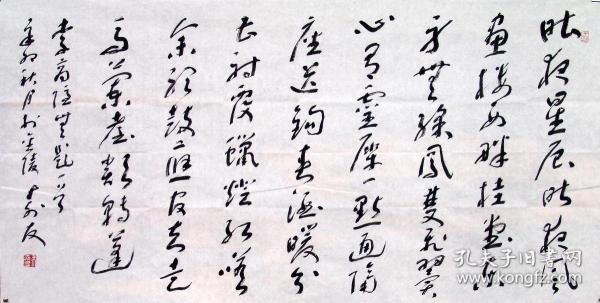 昨夜星辰昨夜風
畫樓西畔桂堂東
身無綵鳳雙飛翼
心有靈犀一點通隔
座送鉤春酒暖分
曹射覆蠟燈紅嗟
余聽鼓應官去走
馬蘭臺類轉蓬
李商隱無題一首
辛卯秋月於金陵 友
孔夫子旧书网
www.kongfz.com